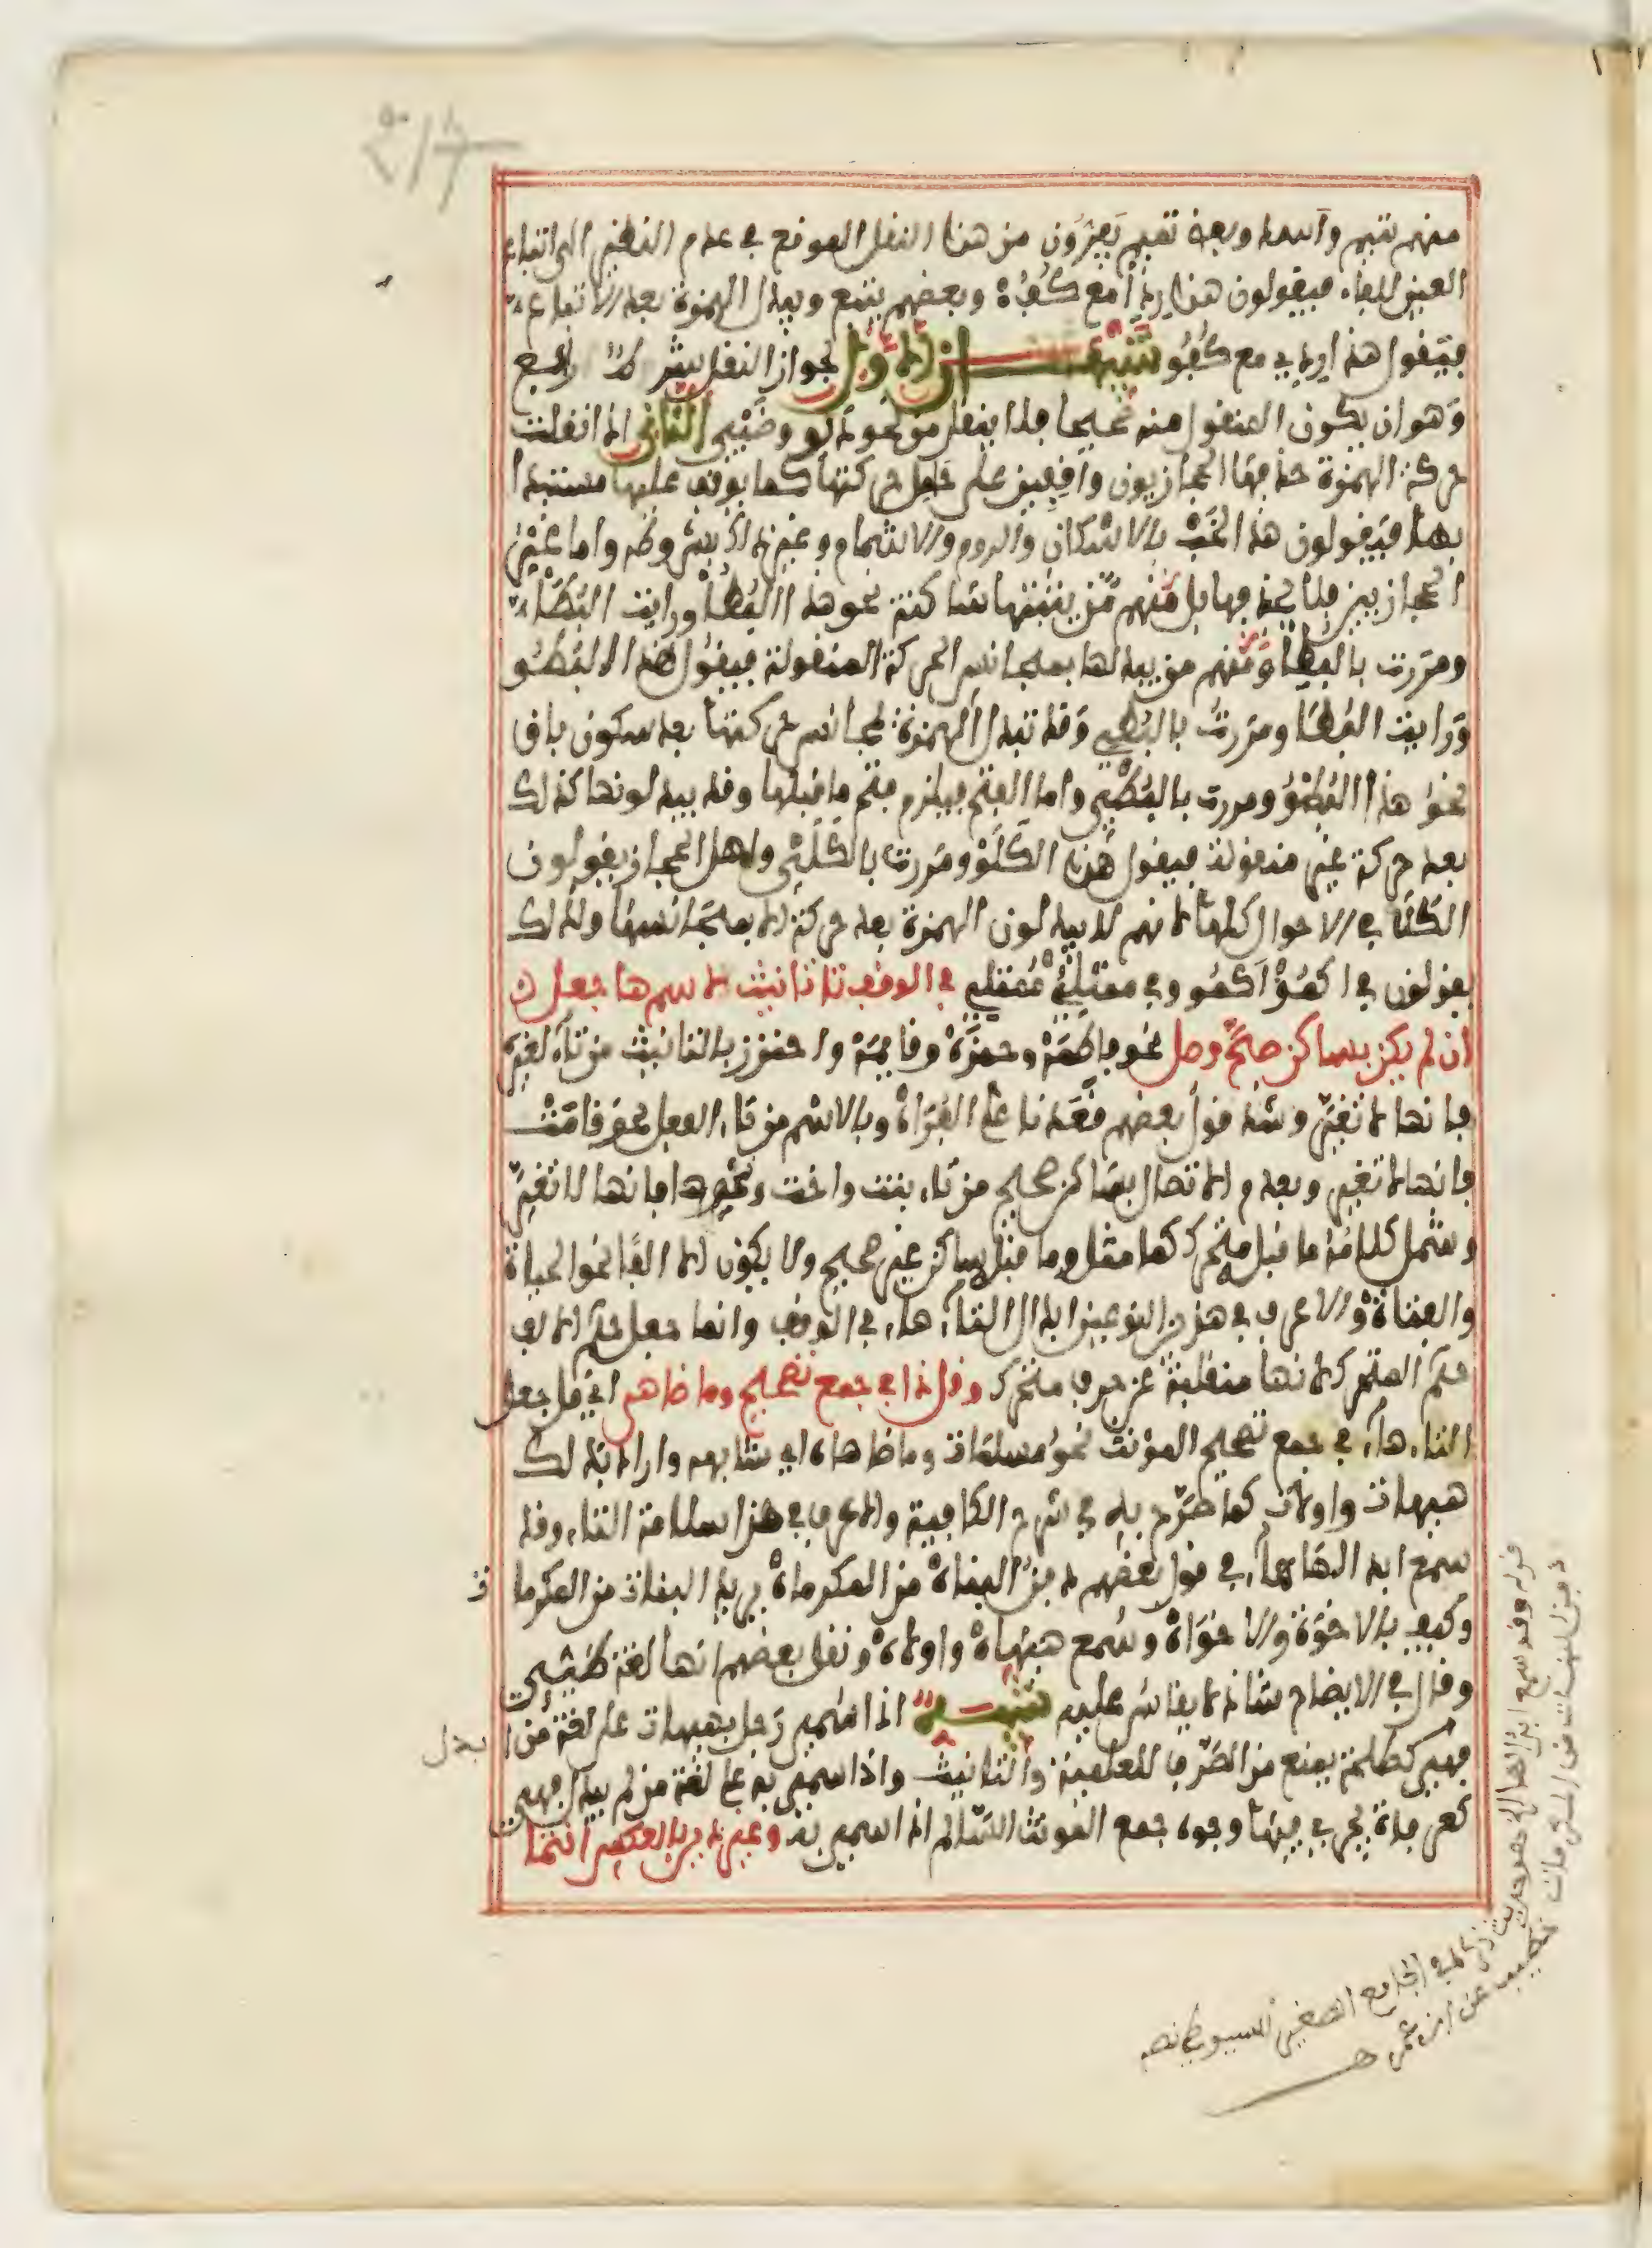 منهم تميم واسد وبعض تميم يفرون من هذا النقل الموقع في عدم النظير الى اتباع
العين للفاء فيقولون هذا ردئ مع كفؤ وبعضهم يتبع ويبدل الهمزة بعد الاتباع
فيقول هذا ردي مع كفو تنبيهان الاول لجواز النقل شرط رابع
وهو ان يكون المنقول منه صحيحا فلا ينقل من نحو الثاني اذا نقلت
حركة الهمزة حذفها الحجازيون واقفين على حامل حركتها كما يوقف عليها مستبدا
بها فيقولون هذا الخب بالاسكان والروم والاشمام وغير ذلك بشروطه واما غير
الحجازيين فلا يحذفها بل منهم من يثبتها ساكنة نحو هذا البطؤ ورايت البطأ
ومررت بالبطئ ومنهم من يبدلها بمجانس الحركة المنقولة فيقول هذا البطو
ورايت البطا ومررت بالبطي وقد تبدل الهمزة بمجانس حركتها بعد سكون باق
نحو هذا البطو ومررت بالبطي واما الفتح فيلزم فتح ما قبلها وقد يبدلونها كذلك
بعد حركة غير منقولة فيقول هذا الكلو ومررت بالكلي واهل الحجاز يقولون
الكلا في الاحوال كلها لانهم لا يبدلون الهمزة بعد حركة الا بمجانسها ولذلك
يقولون في اكمؤ اكمو وفي ممتلئ ممتلي في الوقف تا تانيث الاسم ها جعل
ان لم يكن بساكن صح وصل نحو فاطمه وحمزه وقايمه واحترز بالتانيث من تاء لغيره
فانها لا تغير وشذ قول بعضهم قعدنا على الفراه وبالاسم من تاء الفعل نحو قامت
فانها لا تغير وبعدم الاتصال بساكن صحيح من تاء بنت واخت ونحوها فانها لا تغير
وشمل كلامه ما قبله متحرك كما مثل وما قبله ساكن غير صحيح ولا يكون الا الفا نحو الحياة
والفتاة والاعرف في هذين النوعين ابدال التاء هاء في الوقف وانما جعل حكم الالف
حكم المتحرك لانها منقلبة عن حرف متحرك وقل ذا في جمع تصحيح وما ضاهى اي قل جعل
التاء هاء في جمع تصحيح المؤنث نحو مسلمات وما ضاهاه اي شابهه واراد بذلك
هيهات واولات كما صرح به في شرح الكافية والاعرف في هذا سلامة التاء وقد
سمع ابدالها هاء في قول بعضهم دفن البناه من المكرماه يريد البنات من المكرما ت
وكيف بالاخوة والاخواه وسمع هيهاه واولاه ونقل بعضهم انها لغة طيئ
وقال في الايضاح شاذ لا يقاس عليه تنبيه اذا سمي رجل بهيهات على لغة من ابدل
فهي كطلحة يمنع من الصرف للعلمية والتانيث واذا سمي به على لغة من لم يبدل فهي
كعرفات يجري فيها وجوه جمع المونث السالم اذا سمي به وغير ذين بالعكس انتما
قوله وقد سمع ابدالها الخ هو حديث ذكره في الجامع الصغير للسيوطي نصه
دفن البنات من المكرمات خطيب عن ابن عمر